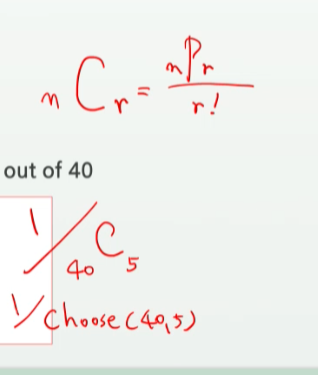 nCr = nPr / r!
out of 40
1/40C5
1/choose(40,5)